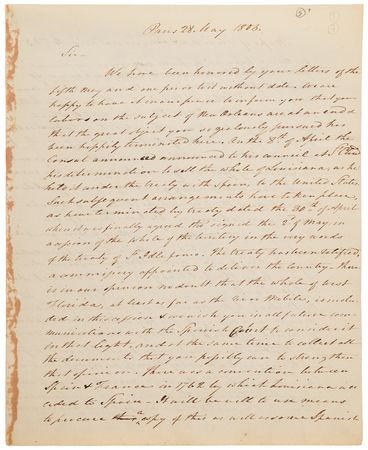 Paris 28. May 1803.
Sir —
We have been honored by your letters of the
fifth May and one prior tho' without date. We are
happy to have it in our power to inform you that your
labors on the subject of New Orleans are at an end
that the great object you so zealously pursued has
been happily terminated here. On the 8th of April the
Consul announced to his council at St Cloud
his determination to sell the whole of Louisiana, as he
held it under the treaty with Spain, to the United States
Such subsequent arrangements have taken place,
as have terminated by treaty dated the 30th of April
when it was finally agreed tho' signed the 2d of May, in
a cession of the whole of the territory in the very words
of the treaty of St Ildefonso. The treaty has been ratified,
a commissary appointed to deliver the country. There
is in our opinion no doubt that the whole of west
Florida, at least as far as the river Mobile, is inclu
ded in this cession & we wish you in all future com
munications with the Spanish Court to consider it
in that light, and at the same time to collect all
the documents that you possibly can to strengthen
that opinion. There was a convention between
Spain & France in 1762 by which Louisiana was
ceded to Spain — It will be well to use means
to procure a copy of this as well as some Spanish